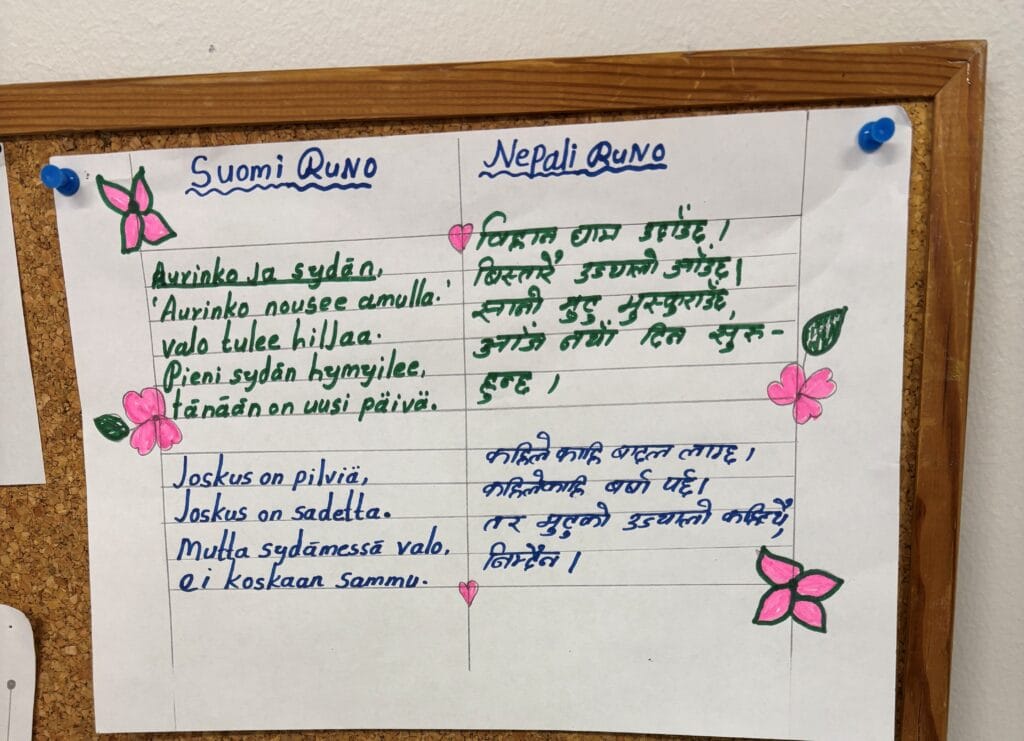 Suomi RUNO
Aurinko Ja sydän,
'Aurinko nousee amulla.'
valo tulee hiljaa.
Pieni sydän hymyilee,
tänään on uusi päivä.
Joskus on pilviä,
Joskus on sadetta.
Mutta sydämessä valo,
ei koskaan sammu.
Nepali RUNO
बिहान घाम उदाउँछ।
बिस्तारै उज्यालो आउँछ।
सानो मुटु मुस्कुराउँछ,
आज नयाँ दिन सुरु-
हुन्छ।
कहिले काहि बादल लाग्छ।
कहिलेकाहि बर्षा पर्छ।
तर मुटुको उज्यालो कहिल्यै,
निभ्दैन।